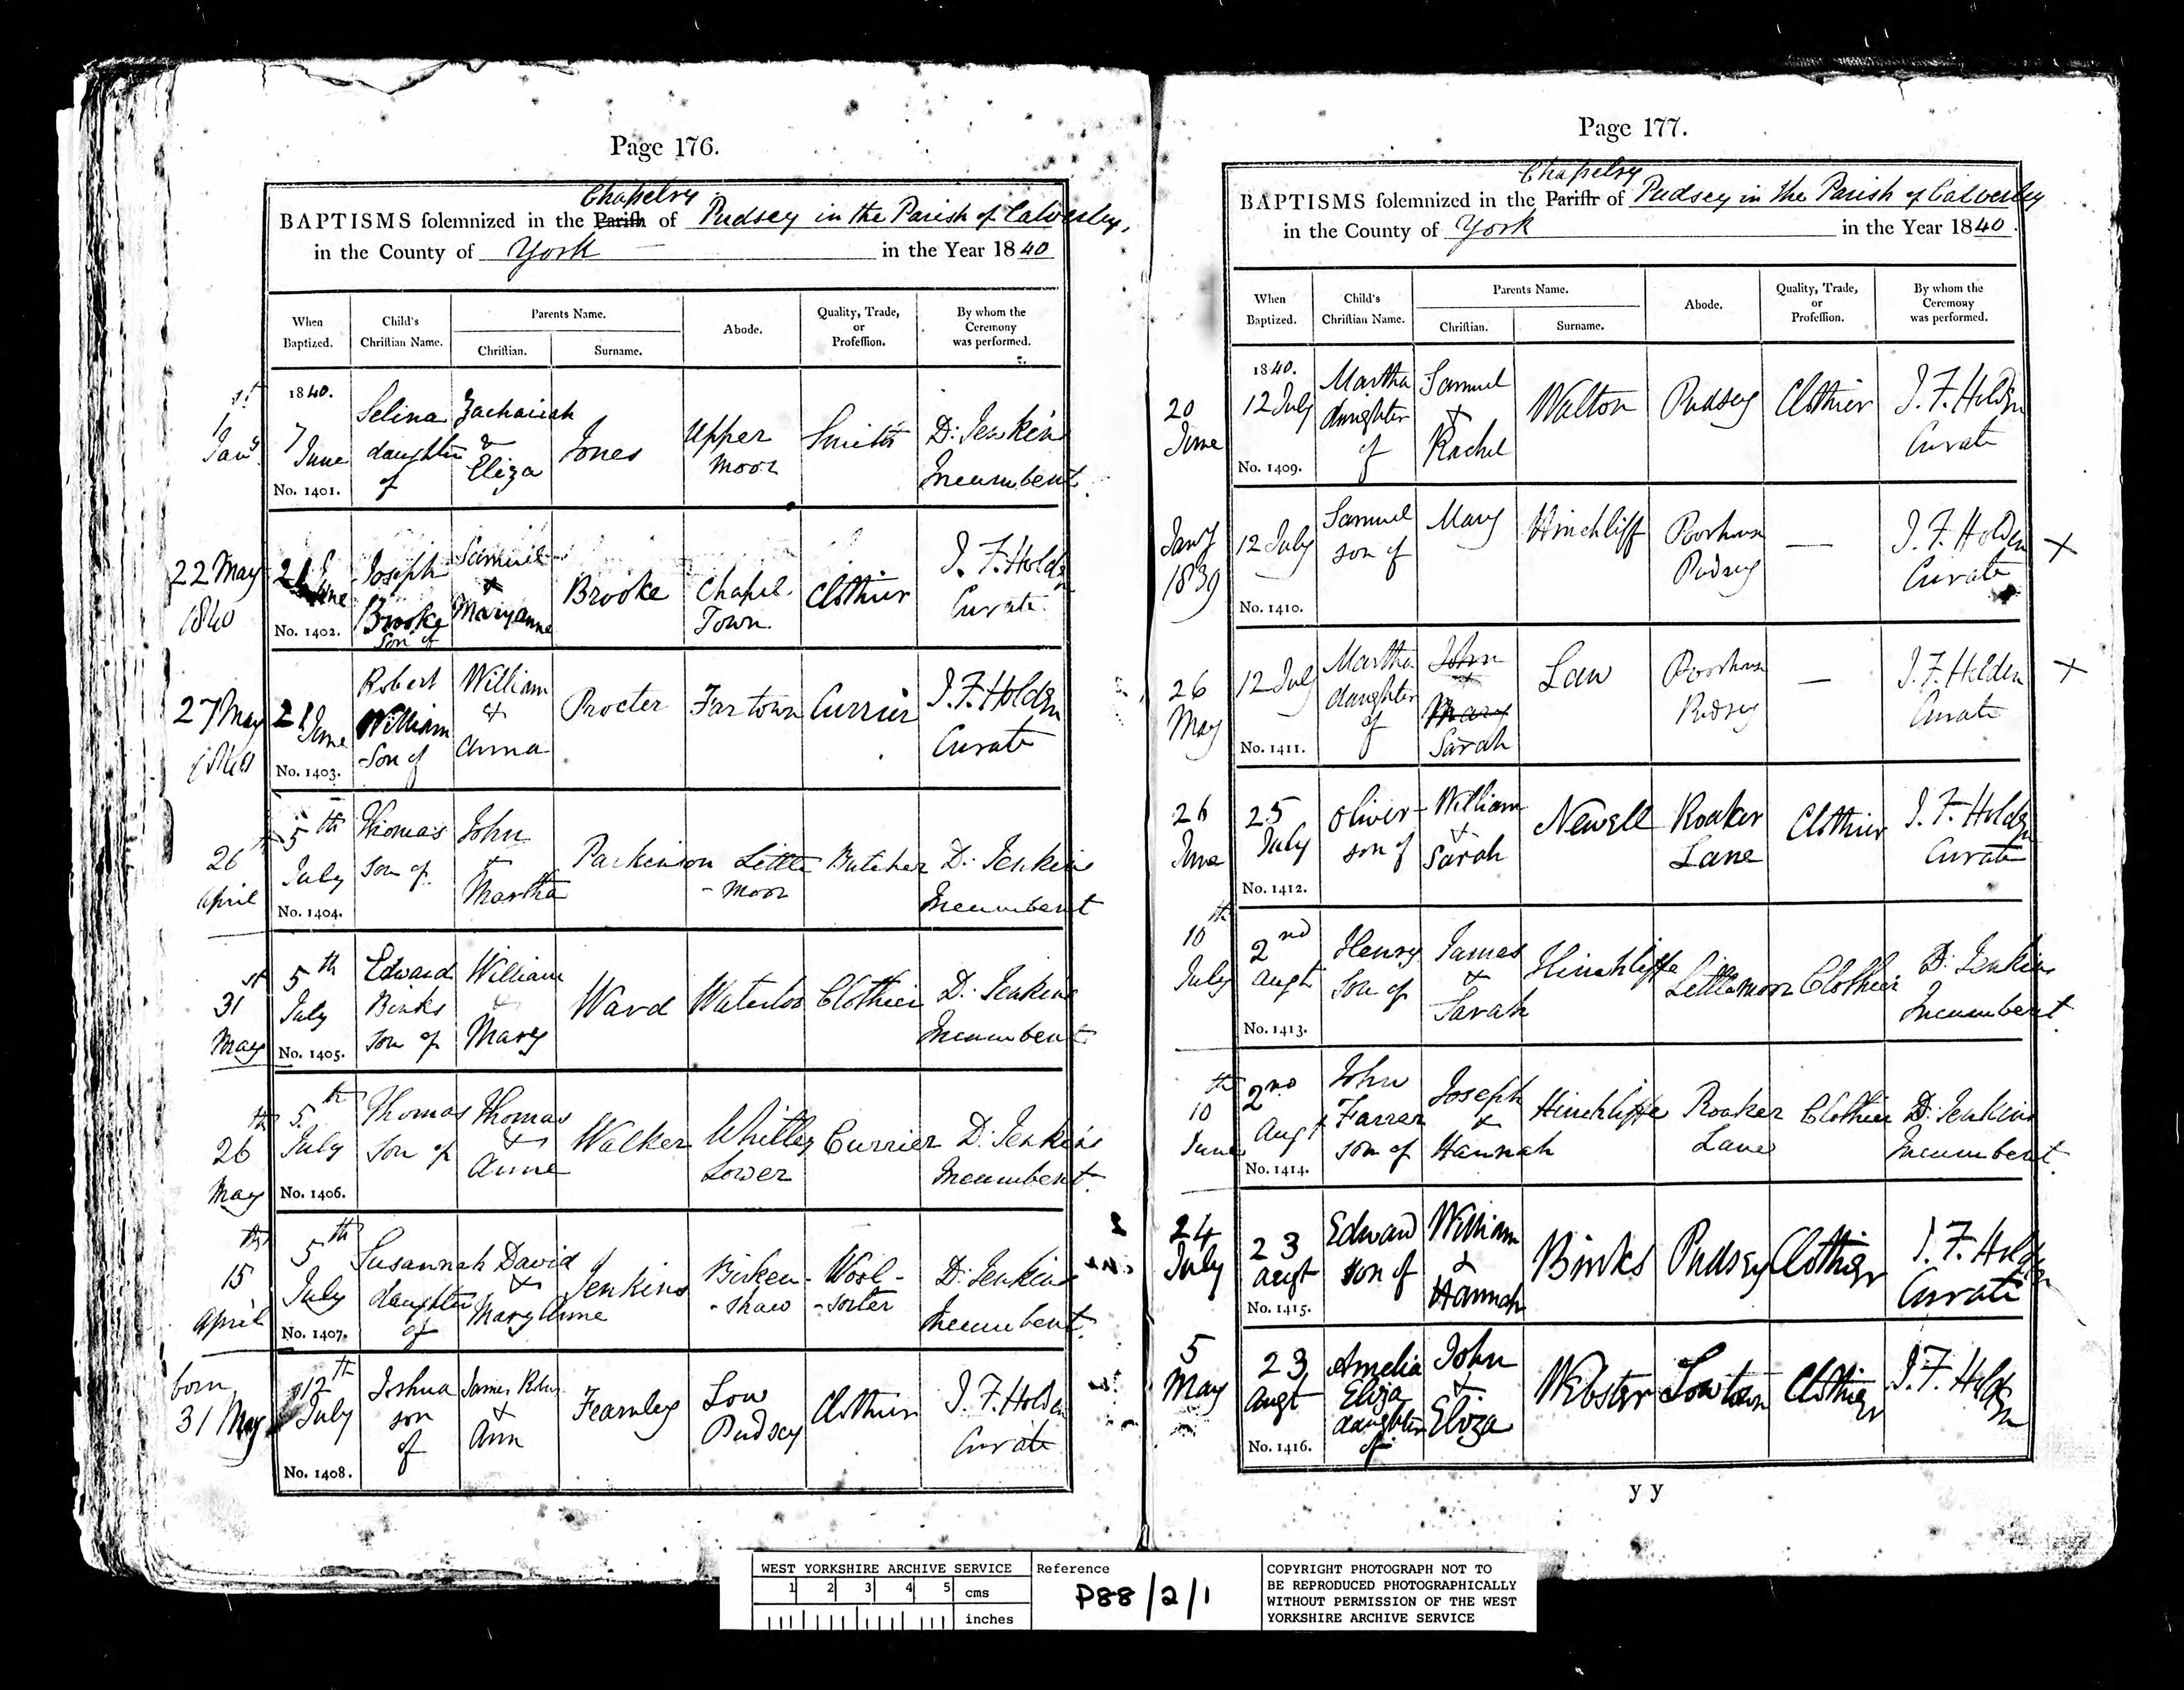 Page 176.
Chapelry
BAPTISMS solemnized in the Parish of Pudsey in the Parish of Calverley,
in the County of York in the Year 1840
When Baptized. Child's Christian Name. Parents Name. Christian. Surname. Abode. Quality, Trade, or Profession. By whom the Ceremony was performed.
1st Jany
1840. 7 June No. 1401. Selina daughter of Zachariah & Eliza Jones Upper Moor Smith D: Jenkins Incumbent.
22 May 1840
21 June No. 1402. Joseph Brooke Son of Samuel & Maryanne Brooke Chapel Town Clothier J. F. Holden Curate
27 May 1840
21 June No. 1403. Robert William Son of William & Anna Procter Fartown Currier J. F. Holden Curate
26th April
5th July No. 1404. Thomas Son of John & Martha Parkinson Little-moor Butcher D: Jenkins Incumbent
31st May
5th July No. 1405. Edward Binks Son of William & Mary Ward Waterloo Clothier D: Jenkins Incumbent.
26th May
5th July No. 1406. Thomas Son of Thomas & Anne Walker Whitley Lower Currier D: Jenkins Incumbent.
15th April
5th July No. 1407. Susannah daughter of David & Mary Anne Jenkins Birken-shaw Wool-sorter D: Jenkins Incumbent.
born 31 May
12th July No. 1408. Joshua son of James & Ann Fearnley Low Pudsey Clothier J. F. Holden Curate
Page 177.
Chapelry
BAPTISMS solemnized in the Parish of Pudsey in the Parish of Calverley
in the County of York in the Year 1840.
When Baptized. Child's Christian Name. Parents Name. Christian. Surname. Abode. Quality, Trade, or Profession. By whom the Ceremony was performed.
20 June
1840. 12 July No. 1409. Martha daughter of Samuel & Rachel Walton Pudsey Clothier J. F. Holden Curate
Jany 1839
12 July No. 1410. Samuel son of Mary Hinchliff Poorhouse Pudsey — J. F. Holden Curate X
26 May
12 July No. 1411. Martha daughter of John & Mary Sarah Law Poorhouse Pudsey — J. F. Holden Curate X
26 June
25 July No. 1412. Oliver son of William & Sarah Newell Roaker Lane Clothier J. F. Holden Curate
10th July
2nd Augt No. 1413. Henry Son of James & Sarah Hinchliffe Littlemoor Clothier D: Jenkins Incumbent.
10th June
2nd Augt No. 1414. John Farrer son of Joseph & Hannah Hinchliffe Roaker Lane Clothier D: Jenkins Incumbent.
24 July
23 Augt No. 1415. Edward son of William & Hannah Binks Pudsey Clothier J. F. Holden Curate
5 May
23 Augt No. 1416. Amelia Eliza daughter of John & Eliza Webster Lowtown Clothier J. F. Holden
y y
WEST YORKSHIRE ARCHIVE SERVICE
1 2 3 4 5 cms
inches
Reference
P88/2/1
COPYRIGHT PHOTOGRAPH NOT TO
BE REPRODUCED PHOTOGRAPHICALLY
WITHOUT PERMISSION OF THE WEST
YORKSHIRE ARCHIVE SERVICE